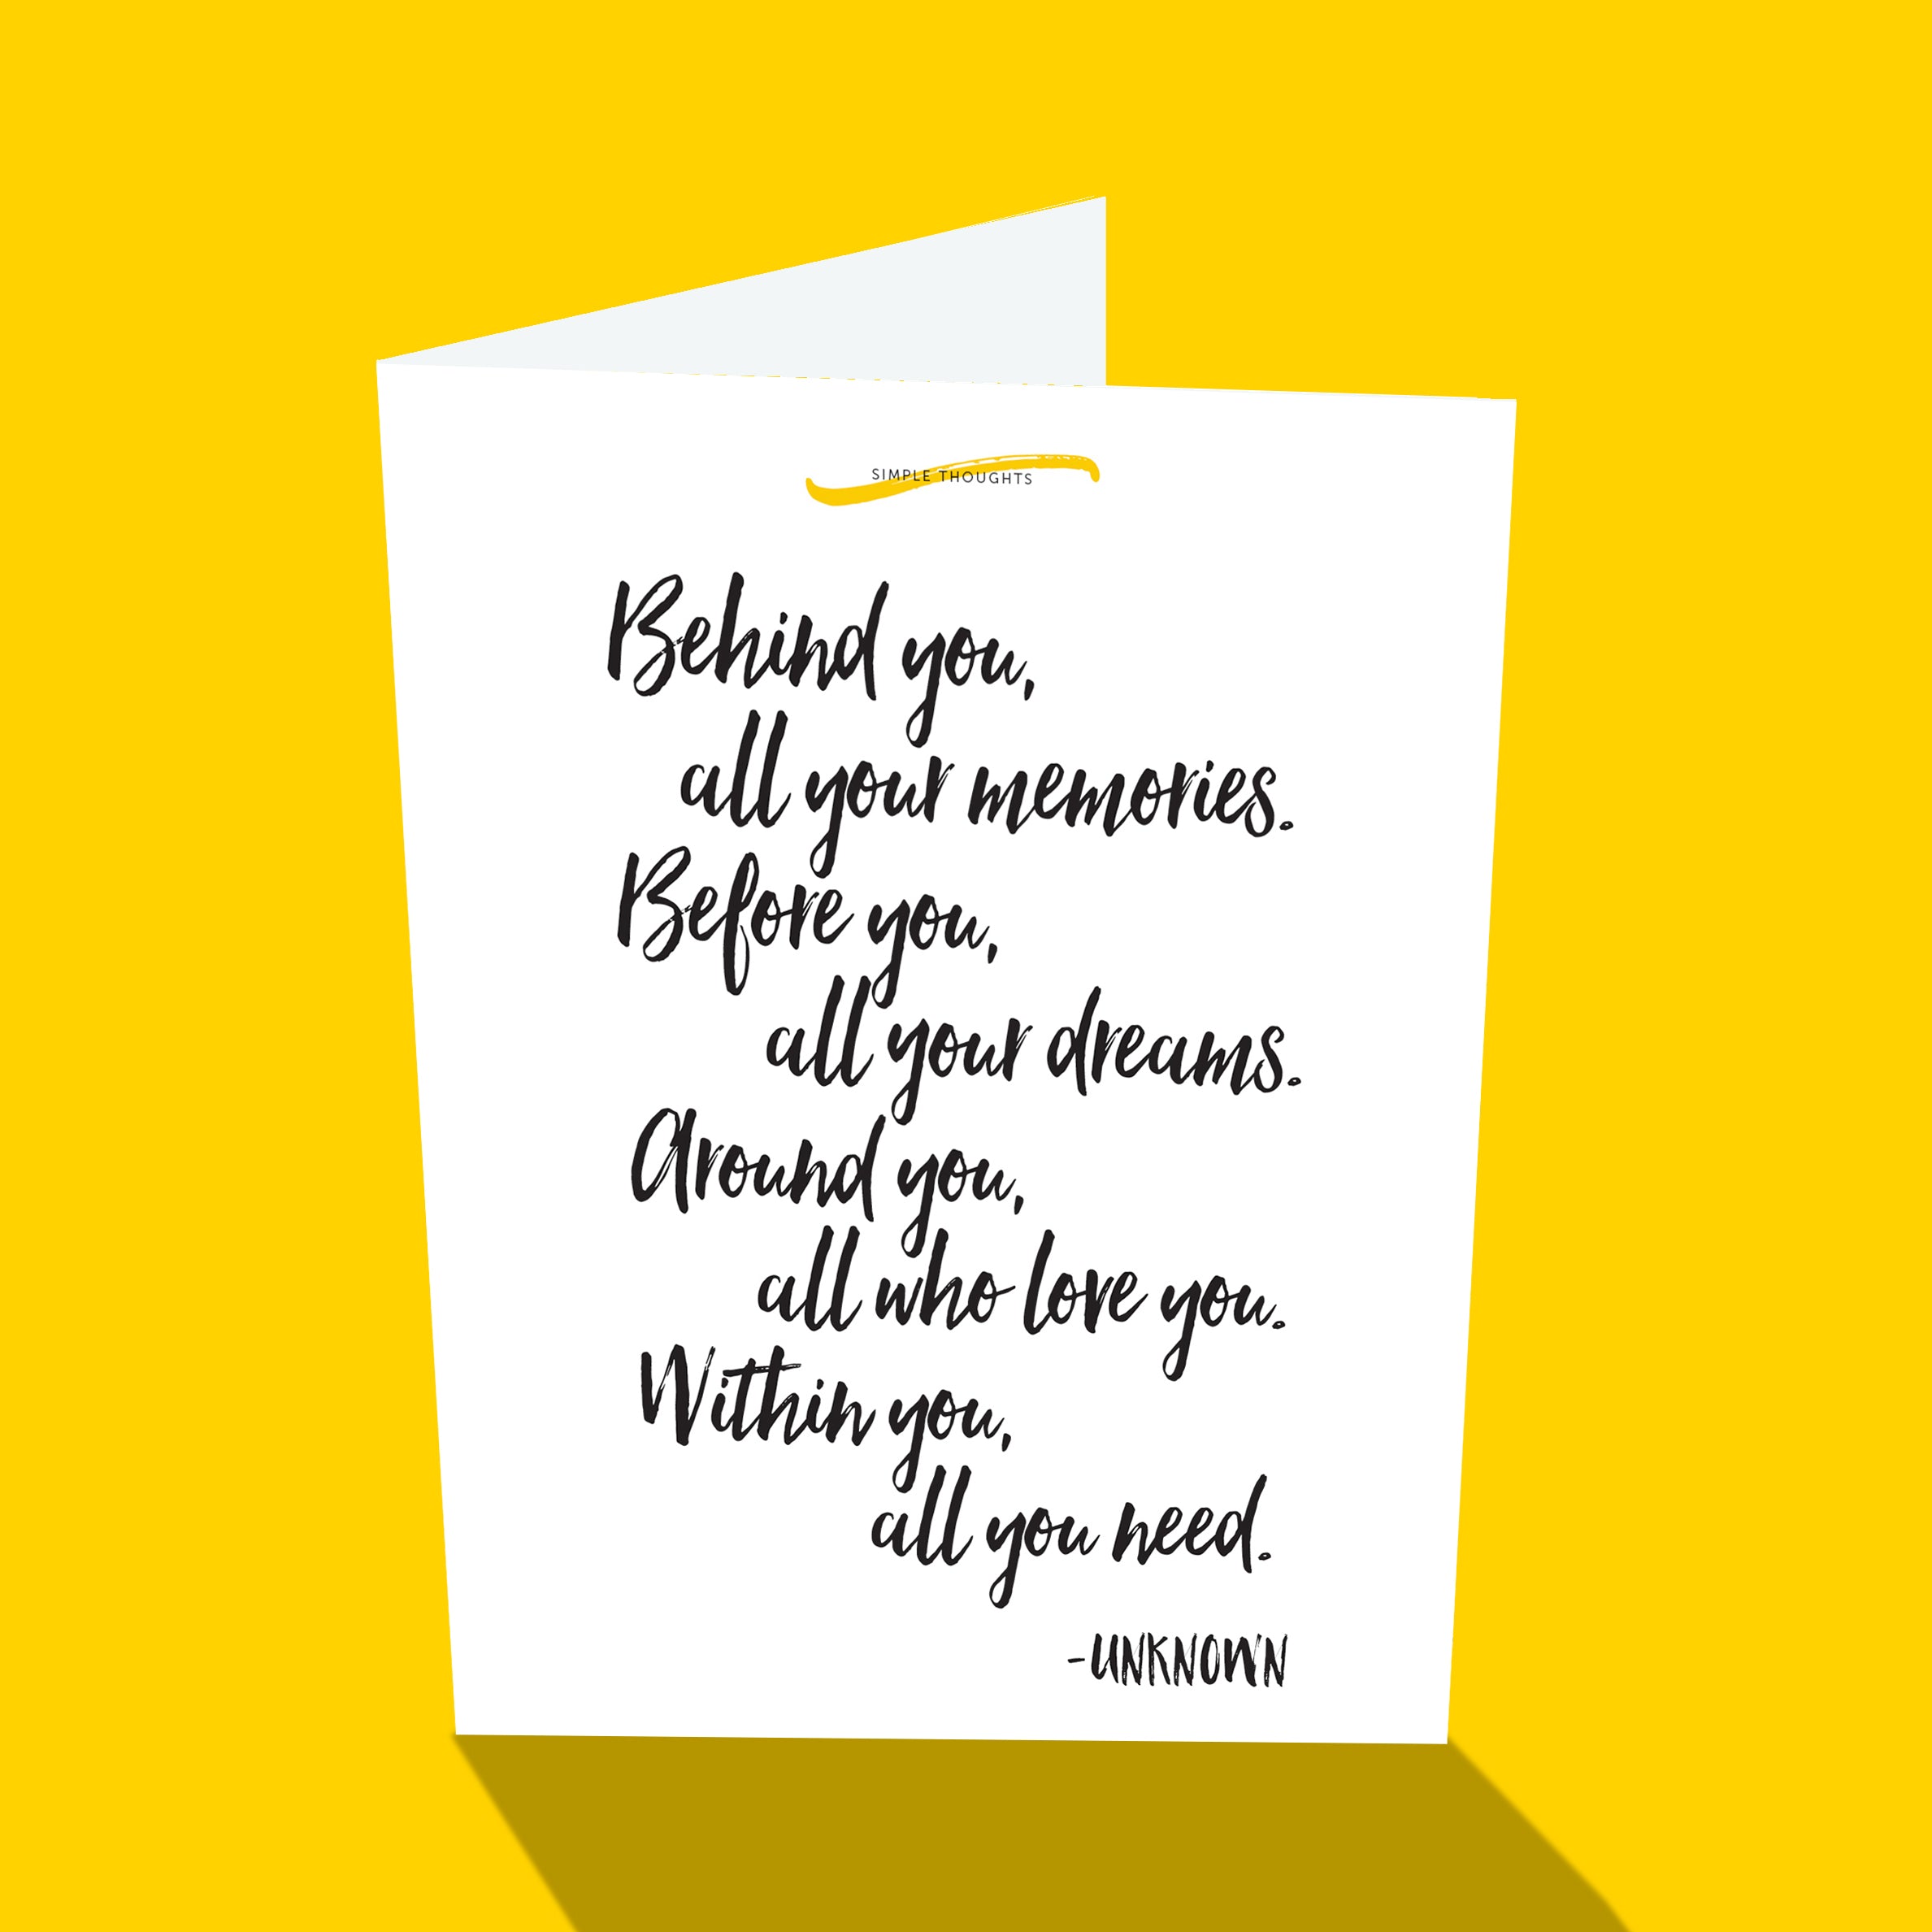 SIMPLE THOUGHTS
Behind you,
all your memories.
Before you,
all your dreams.
Around you,
all who love you.
Within you,
all you need.
-UNKNOWN